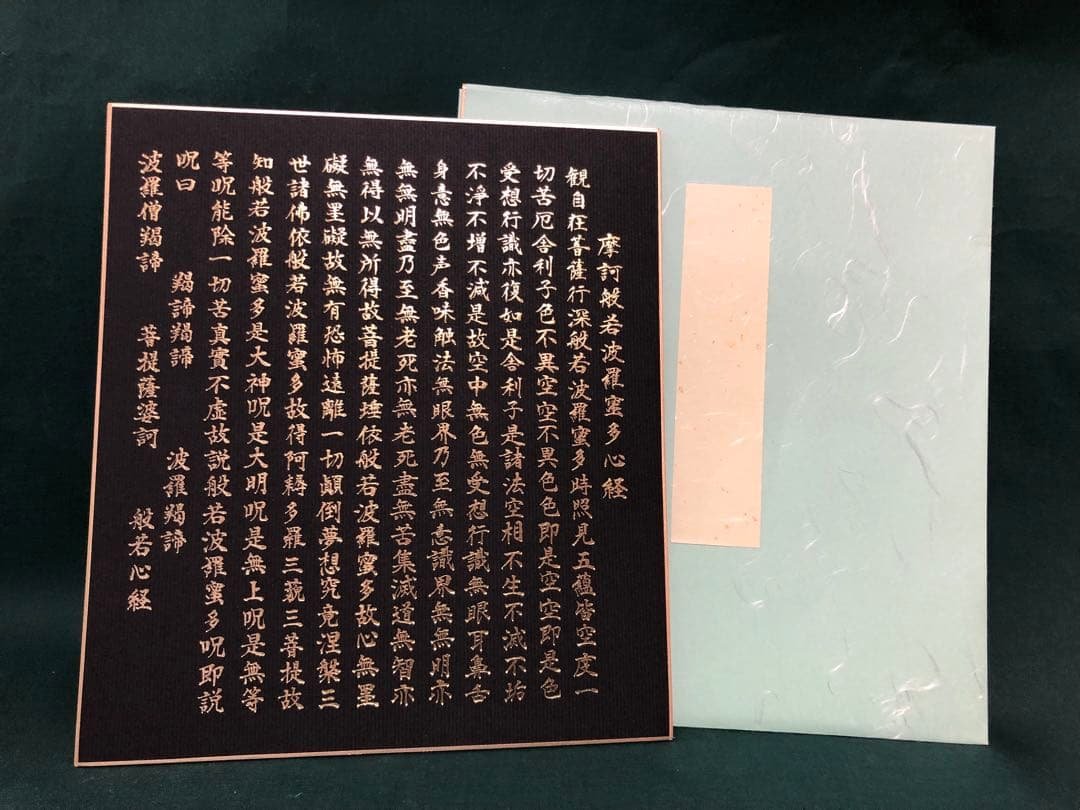 摩訶般若波羅蜜多心経
観自在菩薩行深般若波羅蜜多時照見五蘊皆空度一
切苦厄舎利子色不異空空不異色色即是空空即是色
受想行識亦復如是舎利子是諸法空相不生不滅不垢
不淨不増不減是故空中無色無受想行識無眼耳鼻舌
身意無色声香味触法無眼界乃至無意識界無無明亦
無無明盡乃至無老死亦無老死盡無苦集滅道無智亦
無得以無所得故菩提薩埵依般若波羅蜜多故心無罣
礙無罣礙故無有恐怖遠離一切顛倒夢想究竟涅槃三
世諸佛依般若波羅蜜多故得阿耨多羅三藐三菩提故
知般若波羅蜜多是大神呪是大明呪是無上呪是無等
等呪能除一切苦真實不虚故説般若波羅蜜多呪即説
呪曰 羯諦羯諦 波羅羯諦
波羅僧羯諦 菩提薩婆訶 般若心経